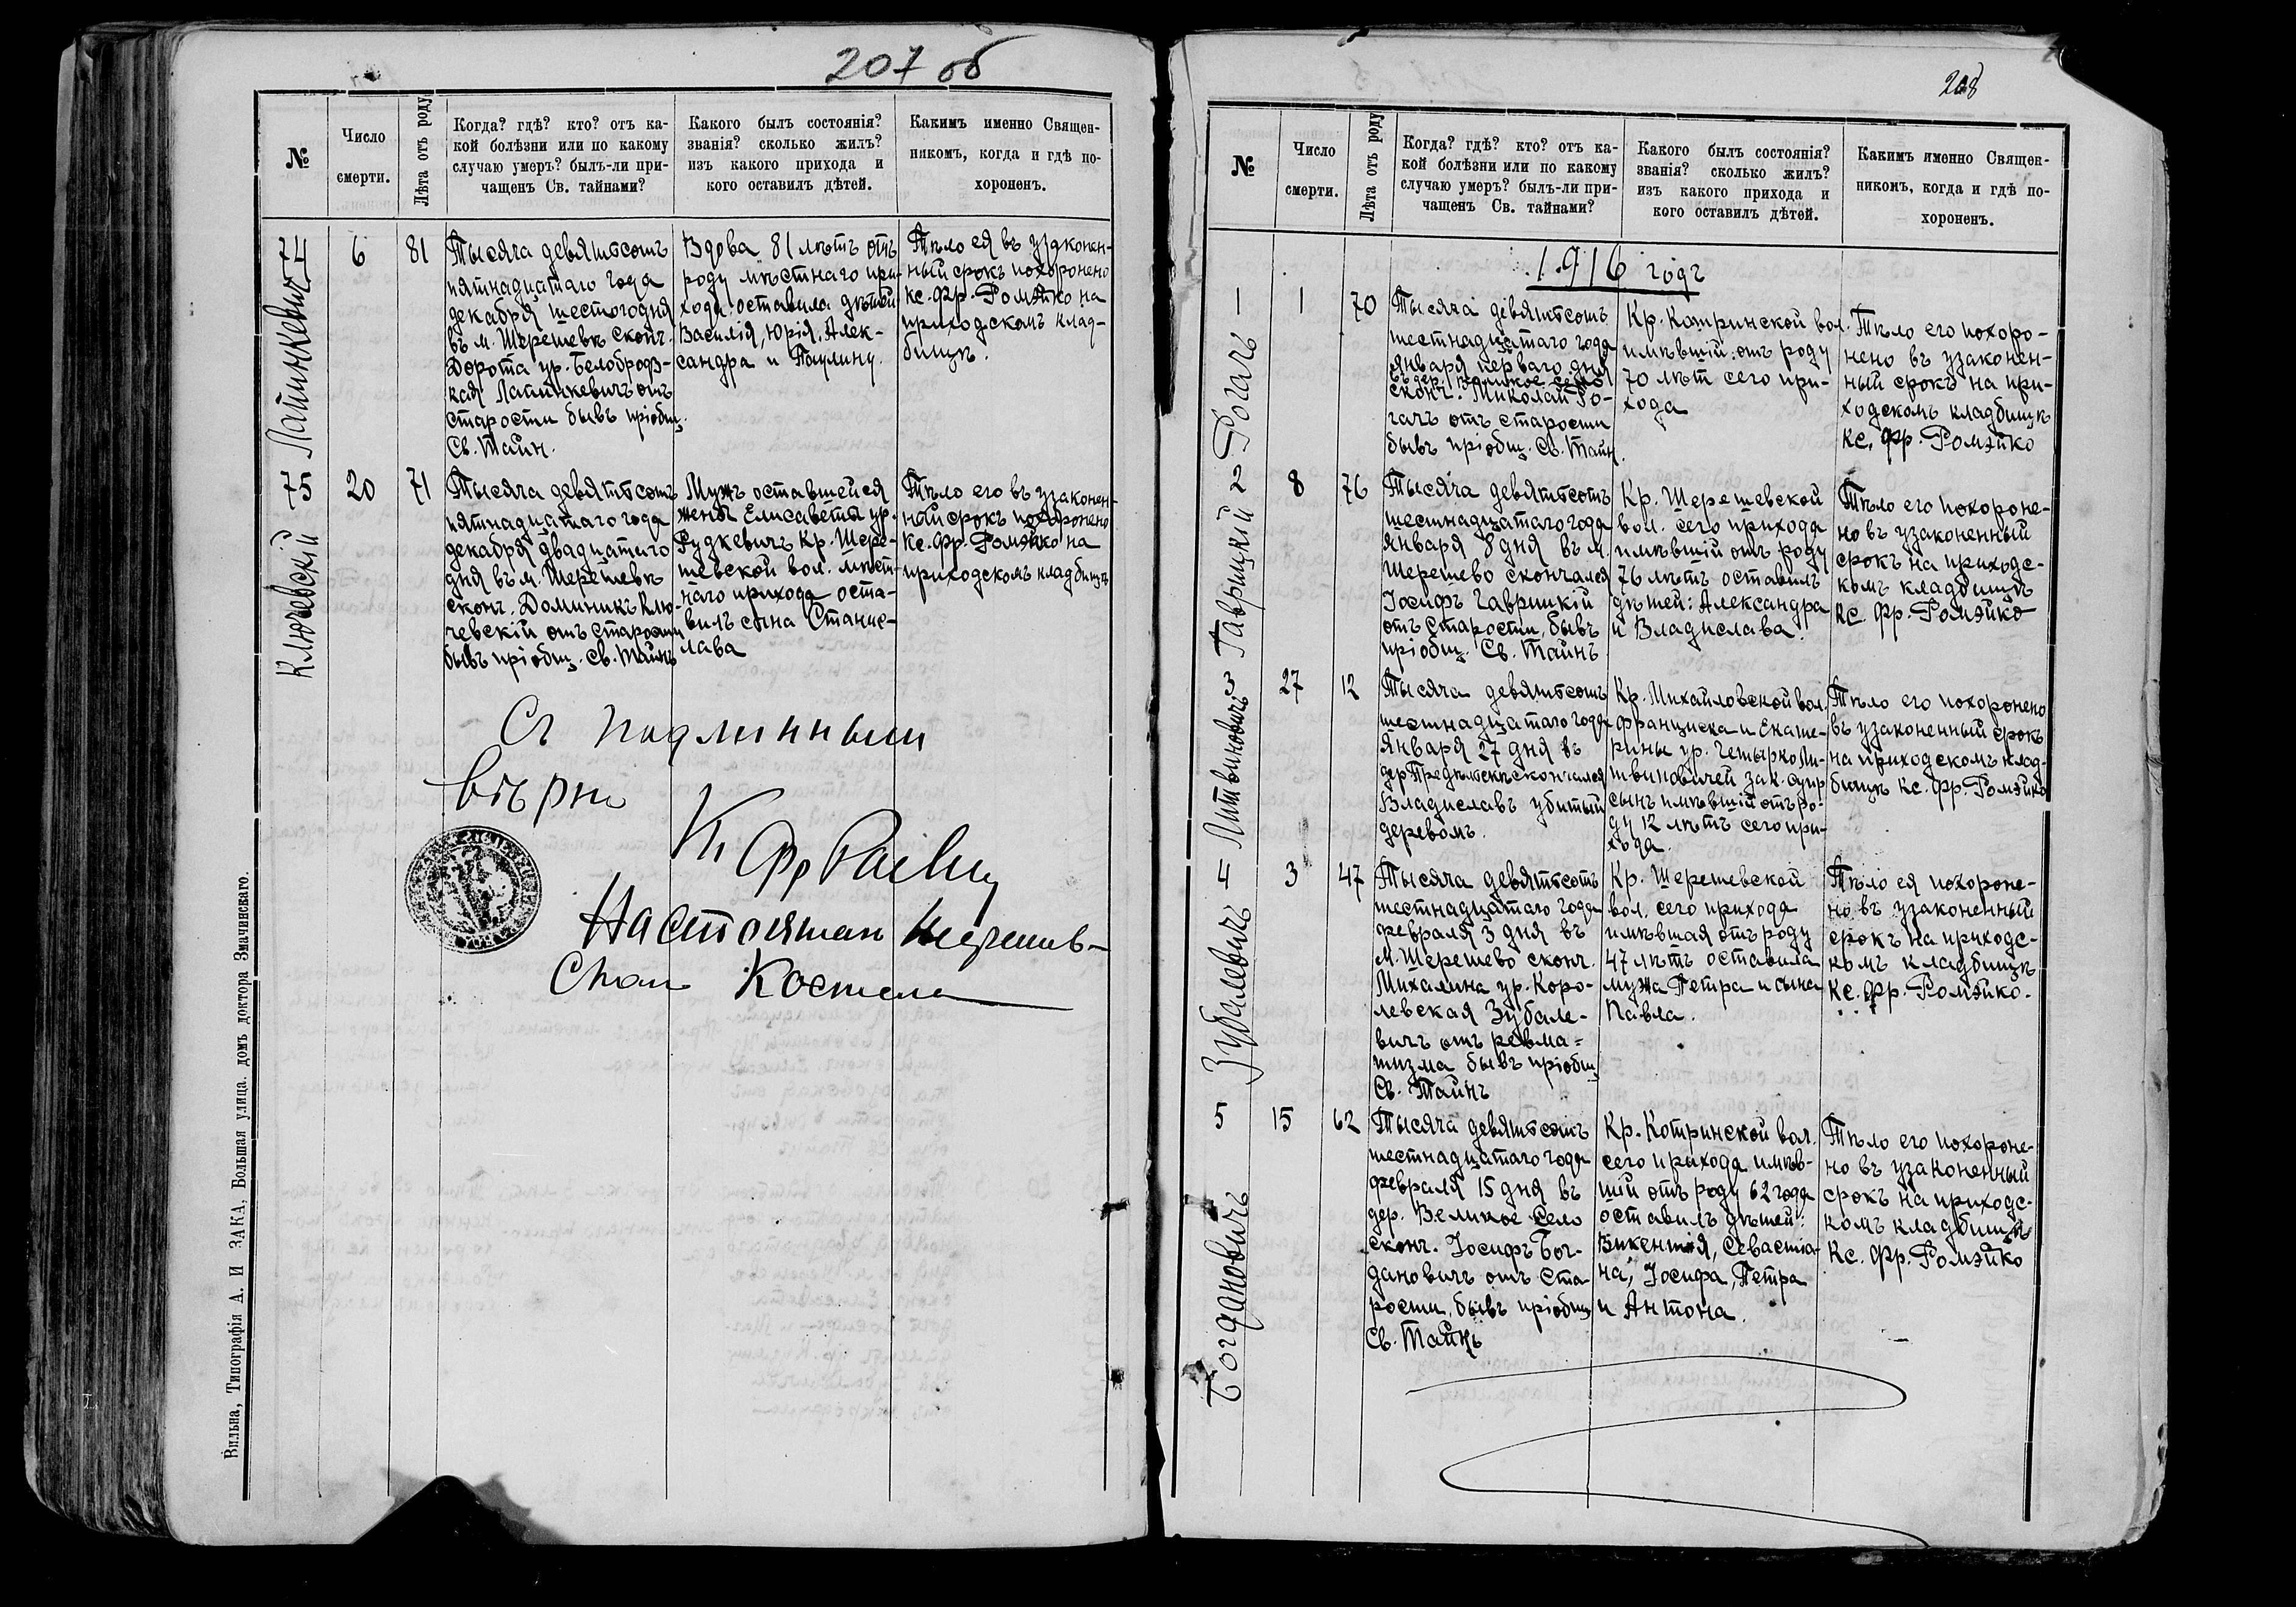 207 об
№
Число
смерти.
Лѣта отъ роду
Когда? гдѣ? кто? отъ ка-
кой болѣзни или по какому
случаю умеръ? былъ-ли при-
чащенъ Св. тайнами?
Какого былъ состоянія?
званія? сколько жилъ?
изъ какого прихода и
кого оставилъ дѣтей.
Какимъ именно Священ-
никомъ, когда и гдѣ по-
хороненъ.
74
Лапинкевич
6
81
Тысяча девятьсотъ
пятнадцатаго года
декабря шестогодня
въ м. Шерешевѣ сконч.
Дорота ур. Белоброд-
кая Лапинкевичъ отъ
старости бывъ пріобщ.
Св. Таинъ.
Вдова 81 лѣтъ отъ
роду мѣстнаго при-
хода: оставила дѣтей
Василія, Юрія, Алек-
сандра и Паулину.
Тѣло ея въ узаконен-
ный срокъ похоронено
кс. Фр. Ромэйко на
приходскомъ клад-
бищѣ.
75
Ключевскій
20
71
Тысяча девятьсотъ
пятнадцатаго года
декабря двадцатаго
дня въ м. Шерешевѣ
сконч. Доминикъ Клю-
чевскій отъ старости
бывъ пріобщ. Св. Таинъ
Мужъ оставшейся
жены Елисаветы ур.
Рудкевичъ Кр. Шере-
шевской вол. мѣст-
наго прихода оста-
вилъ сына Станис-
лава
Тѣло его въ узаконен-
ный срокъ похоронено
Кс. Фр. Ромэйко на
приходскомъ кладбищѣ
Съ подлиннымъ
вѣрно
Настоятель Шерешев-
скаго Костела
Вильна, Типографія А. И ЗАКА, Большая улица. домъ доктора Змачинскаго.
208
№
Число
смерти.
Лѣта отъ роду
Когда? гдѣ? кто? отъ ка-
кой болѣзни или по какому
случаю умеръ? былъ-ли при-
чащенъ Св. тайнами?
Какого былъ состоянія?
званія? сколько жилъ?
изъ какого прихода и
кого оставилъ дѣтей.
Какимъ именно Священ-
никомъ, когда и гдѣ по-
хороненъ.
1916 годъ
1
Рогачъ
1
70
Тысяча девятьсотъ
шестнадцатаго года
января перваго дня
въ дер. Великое село
сконч. Миколай Ро-
гачъ отъ старости
бывъ пріобщ. Св. Таин.
Кр. Котринской вол.
имѣвшій отъ роду
70 лѣт сего при-
хода
Тѣло его похоро-
нено въ узаконен-
ный срокъ на при-
ходскомъ кладбищѣ
кс. Фр. Ромэйко
2
Гаврицкій
8
76
Тысяча девятьсотъ
шестнадцатаго года
января 8 дня въ м.
Шерешево скончался
Іосифъ Гаврицкій
отъ старости, бывъ
пріобщ. Св. Таинъ
Кр. Шерешевской
вол. сего прихода
имѣвшій отъ роду
76 лѣтъ оставилъ
дѣтей: Александра
и Владислава.
Тѣло его похороне-
но въ узаконенный
срокъ на приходс-
комъ кладбищѣ
Кс. Фр. Ромэйко
3
Литвиновичъ
27
12
Тысяча девятьсотъ
шестнадцатаго года
января 27 дня въ
скончался
Владиславъ убитый
деревомъ.
Кр. Михайловской вол.
Франциска и Екате-
рины ур. Четырко Ли-
твиновичей зак. супр
сынъ имѣвшій отъ ро-
ду 12 лѣтъ сего при-
хода.
Тѣло его похоронено
въ узаконенный срокъ
на приходскомъ клад-
бищѣ Кс. Фр. Ромэйко
4
Зубалевичъ
3
47
Тысяча девятьсотъ
шестнадцатаго года
февраля 3 дня въ
м. Шерешево сконч.
Михалина ур. Коро-
левская Зубале-
вичъ отъ ревма-
тизма бывъ пріобщ
Св. Таинъ
Кр. Шерешевской
вол. сего прихода
имѣвшая отъ роду
47 лѣтъ оставила
мужа Петра и сына
Павла.
Тѣло ея похороне-
но въ узаконенный
срокъ на приходс-
комъ кладбищѣ
Кс. Фр. Ромэйко.
5
Богдановичъ
15
62
Тысяча девятьсотъ
шестнадцатаго года
февраля 15 дня въ
дер. Великое Село
сконч. Іосифъ Бог-
дановичъ отъ ста-
рости, бывъ пріобщ
Св. Таинъ
Кр. Котринской вол.
сего прихода имѣв-
шій отъ роду 62 года
оставилъ дѣтей:
Викентія, Севастіа-
на, Іосифа, Петра
и Антона.
Тѣло его похороне-
но въ узаконенный
срокъ на приходс-
комъ кладбищѣ
Кс. Фр. Ромэйко